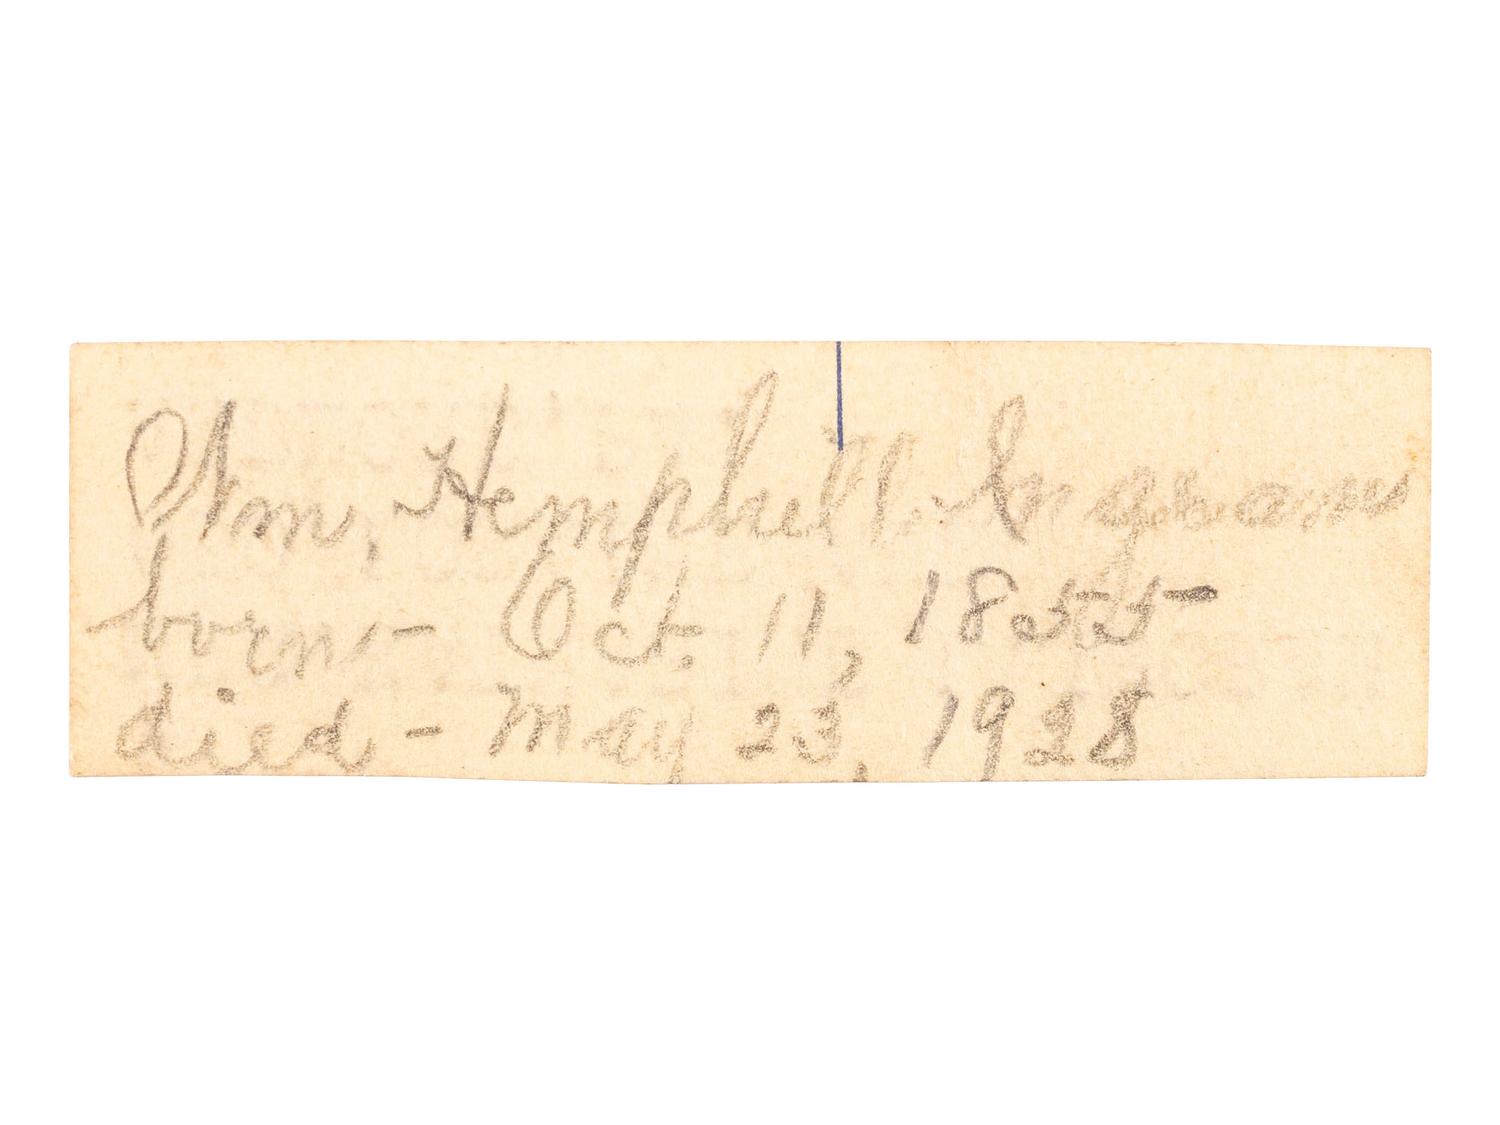 Wm. Hemphill Ingram
born - Oct. 11, 1855
died - May 23, 1928